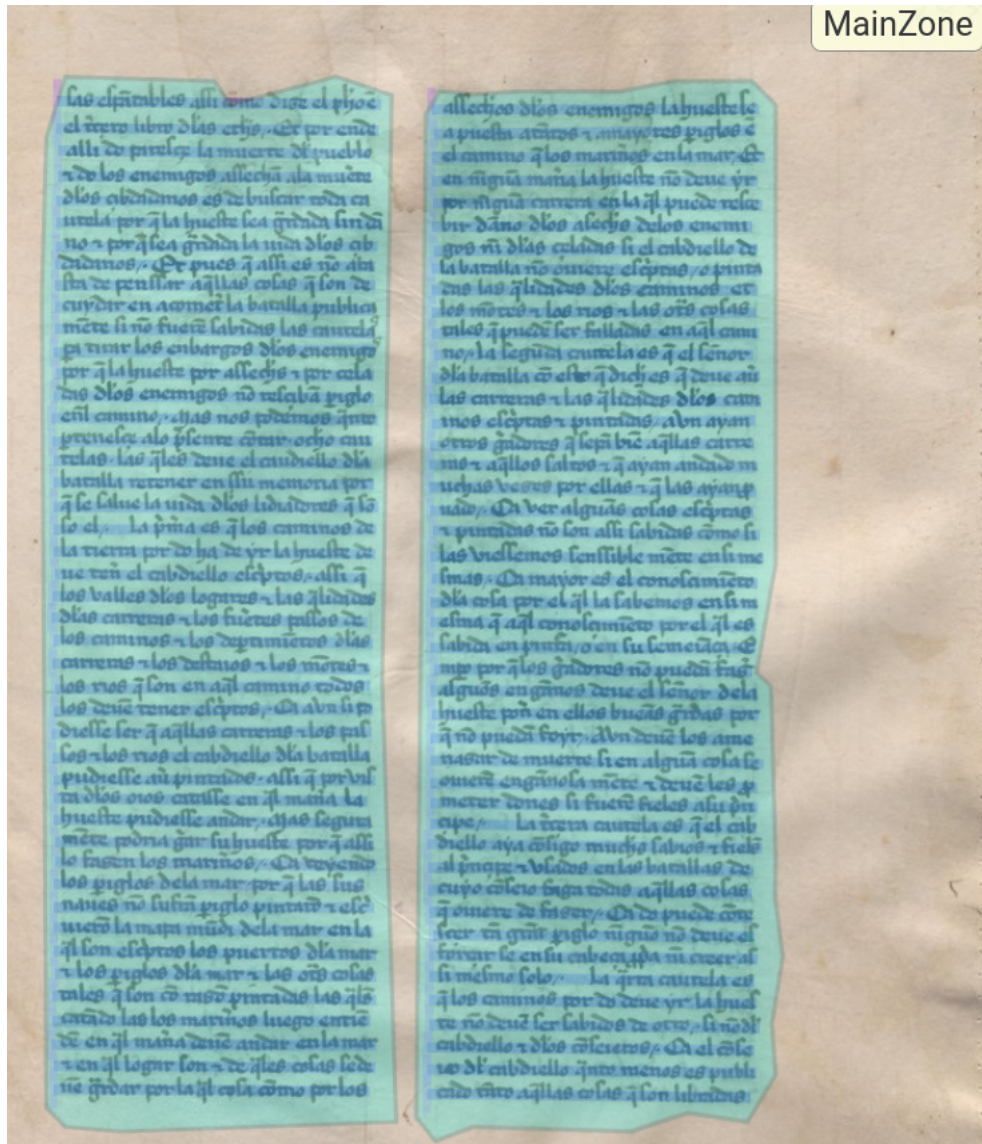 MainZone
las espãtables assi como dize el pho ẽ
el tẽro libro dlas ethjs. Et por ende
alli do paresçe la muerte dl pueblo
⁊ do los enemigos assechã ala muẽte
dlos cibdadanos es de buscar toda ca
utela por q̃ la hueste sea gr̃dada sin dã
no ⁊ por q̃ sea gr̃dada la uida dlos cib
dadanos. Et pues q̃ assi es no aba
sta de penssar aq̃llas cosas q̃ son de
cuydar en acomet̃ la batalla publica
mẽte si nõ fuerẽ sabidas las cautelas
pa tirar los enbargos dlos enemigos
por q̃ la hueste por assechos ⁊ por cela
das dlos enemigos nõ resciba ꝑiglo
enl camino. Mas nos podemos q̃nto
ꝑtenesçe alo p̃sente cõtar ocho cau
telas las q̃les deue el caudiello dla
batalla retener en ssu memoria por
q̃ se salue la uida dlos lidiadores q̃ sõ
so el. La p̃ma es q̃ los caminos de
la tierra por do ha de yr la hueste de
ue ten̄ el cabdiello esc̃ptos assi q̃
los valles dlos logares ⁊ las q̃lidades
dlas carreras ⁊ los fuẽtes passos de
los caminos ⁊ los dep̃timiẽtos dlas
carreras ⁊ los desuios ⁊ los mõtes ⁊
los rios q̃ son en aq̃l camino todos
los deuẽ tener esc̃ptos. Ca avn si po
diesse ser q̃ aq̃llas carreras ⁊ los pas
sos ⁊ los rios el cabdiello dla batalla
pudiesse au̾ pintados assi q̃ por vis
ta dlos oios catasse en q̃l mañã la
hueste pudiesse andar. Mas segura
mẽte podria gr̃ar su hueste por q̃ assi
lo fasen los marin̄os. Ca veyendo
los ꝑiglos dela mar por q̃ las sus
naues nõ sufrã ꝑiglo pintarõ ⁊ esc̃
uierõ la mapa mũdi dela mar en la
q̃l son esc̃ptos los puertos dla mar
⁊ los ꝑiglos dla mar ⁊ las ot̃s cosas
tales q̃ son cõ razõ pintadas las q̃ls
catãdo las los marin̄os luego entiẽ
dẽ en q̃l mañã deuẽ andar en la mar
⁊ en q̃l logar son ⁊ de q̃les cosas se de
uẽ gr̃dar por la q̃l cosa cõmo por los
assechos dlos enemigos la hueste se
a puesta atãtos ⁊ a mayores ꝑiglos ẽ
el camino q̃ los marin̄os en la mar. Et
en nĩgũa mañã la hueste nõ deue yr
por nĩgũa carrera en la q̃l puede resce
bir dan̄o dlos asechos delos enemi
gos nĩ dlas celadas si el cabdiello de
la batalla nõ ouiere esc̃ptas o pinta
das las q̃lidades dlos caminos et
los mõtes ⁊ los rios ⁊ las ot̃s cosas
tales q̃ puedẽ ser falladas en aq̃l cami
no. La segũda cautela es q̃ el sen̄or
dla batalla cõ esto q̃ dich̃ es q̃ deue au̾
las carreras ⁊ las q̃lidades dlos cam
inos esc̃ptas ⁊ pintadas. Avn ayan
otros gr̃dores q̃ sepã biẽ aq̃llas carre
ras ⁊ aq̃llos saltos ⁊ q̃ ayan andado m
uchas veses por ellas ⁊ q̃ las ayan ꝓ
uado. Ca ver algũas cosas esc̃ptas
⁊ pintadas nõ son assi sabidas cõmo si
las viessemos senssible mẽte en si me
smas. Ca mayor es el conoscimiẽto
dla cosa por el q̃l la sabemos en si m
esma q̃ aq̃l conoscimiẽto por el q̃l es
sabida en pint̃a o en su semeiãça. E
mpo por q̃ los gr̃dores nõ puedã faz̃
algũos engan̄os deue el sen̄or dela
hueste pon̄ en ellos buẽas gr̃das por
q̃ nõ puedã foyr. Avn deuẽ los ame
nasar de muerte si en algũa cosa se
ouierẽ engan̄osa mẽte ⁊ deuẽ les ꝓ
meter dones si fuerẽ fieles a su p̃n
cipe. La t̃cera cautela es q̃ el cab
diello aya cõsigo muchos sabios ⁊ fiels
al p̃ncipe ⁊ vsados en las batallas de
cuyo cõseio faga todas aq̃llas cosas
q̃ ouiere de faser. Ca do puede cõte
scer tã grãt ꝑiglo nĩguo nõ deue es
forçar se en su cabeça nĩ creer a
si mesmo solo. La q̃rta cautela es
q̃ los caminos por do deue yr la hues
te nõ deuẽ ser sabidos de otro si nõ dl
cabdiello ⁊ dlos cõseieros. Ca el cõse
io dl cabdiello q̃nto menos es publi
cado tãto aq̃llas cosas q̃ son libradas